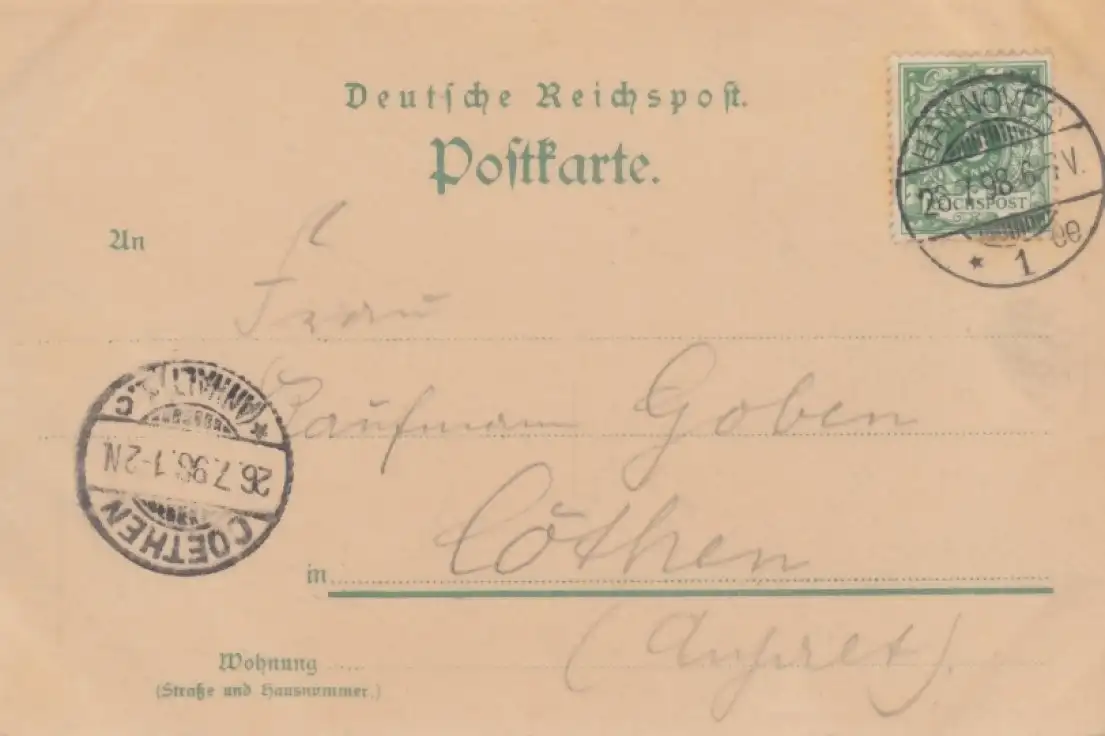 Deutsche Reichspost.
Postkarte.
HANNOVER
26.7.98.6-7V.
* 1 ee
REICHSPOST
An
Frau
Kaufmann Goben
in Cöthen
(Anhalt).
COETHEN
26.7.98.1-2N.
* (ANHALT) * c
Wohnung
(Straße und Hausnummer.)